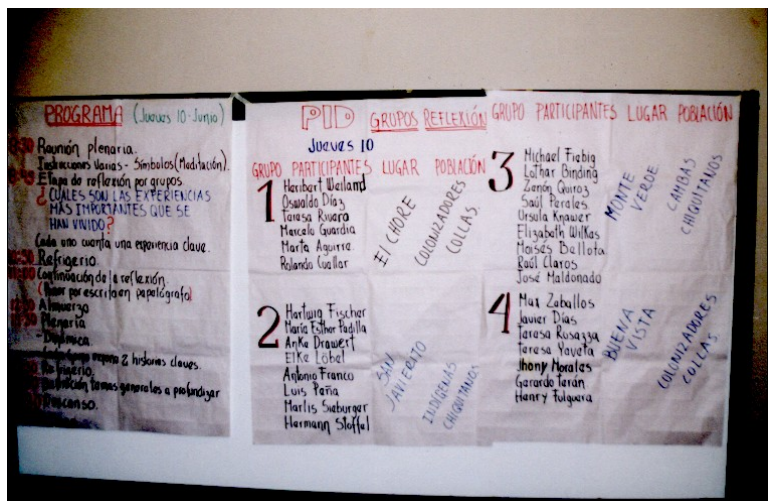 PROGRAMA (Jueves 10-Junio)
Reunión plenaria.
Instrucciones Varias - Símbolos (Meditación).
Etapa de reflexión por grupos
¿CUALES SON LAS EXPERIENCIAS
MÁS IMPORTANTES QUE SE
HAN VIVIDO?
Cada uno cuenta una experiencia clave.
Refrigerio.
Continuación de la reflexión.
(Poner por escrito en papelógrafo)
Almuerzo
Plenaria
- Dinámica
2 historias claves.
Refrigerio.
temas generales a profundizar
Descanso.
PID GRUPOS REFLEXIÓN
Jueves 10
GRUPO PARTICIPANTES LUGAR POBLACIÓN
1
Heribert Weiland
Oswaldo Díaz
Teresa Rivera
Marcelo Guardia
Marta Aguirre.
Rolando Cuellar
El CHORE
COLONIZADORES
COLLAS.
2
Hartwig Fischer
María Esther Padilla
Anke Drawert
Elke Löbel
Antonio Franco
Luis Peña
Marlis Sieburger
Hermann Stoffel
SAN
JAVIERITO
INDÍGENAS
CHIQUITANOS
GRUPO PARTICIPANTES LUGAR POBLACIÓN
3
Michael Fiebig
Lothar Binding
Zenón Quiroz
Saúl Perales
Ursula Knawer
Elizabeth Wilkas
Moisés Ballota
Raúl Claros
José Maldonado
MONTE
VERDE
CAMBAS
CHIQUITANOS
4
Max Zeballos
Javier Días
Teresa Rosazza
Teresa Yaveta
Jhony Morales
Gerardo Terán
Henry Fulguera
BUENA
VISTA
COLONIZADORES
COLLAS.